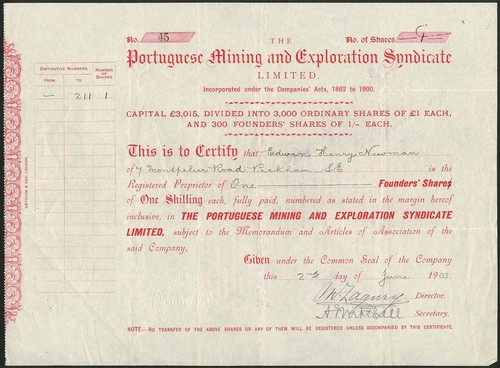 No. 45
THE
No. of Shares 1
Portuguese Mining and Exploration Syndicate
LIMITED.
Incorporated under the Companies' Acts, 1862 to 1900.
CAPITAL £3,015, DIVIDED INTO 3,000 ORDINARY SHARES OF £1 EACH,
AND 300 FOUNDERS' SHARES OF 1/- EACH.
DISTINCTIVE NUMBERS.
NUMBER OF SHARES.
FROM
TO
— 211 1
This is to Certify that Edwin Henry Newman
of 7 Montpelier Road Peckham S.E is the
Registered Proprietor of One Founders' Shares
of One Shilling each, fully paid, numbered as stated in the margin hereof
inclusive, in THE PORTUGUESE MINING AND EXPLORATION SYNDICATE
LIMITED, subject to the Memorandum and Articles of Association of the
said Company.
Given under the Common Seal of the Company
this 2nd day of June 1903
Director.
Secretary.
NOTE.—NO TRANSFER OF THE ABOVE SHARES OR ANY OF THEM WILL BE REGISTERED UNLESS ACCOMPANIED BY THIS CERTIFICATE.